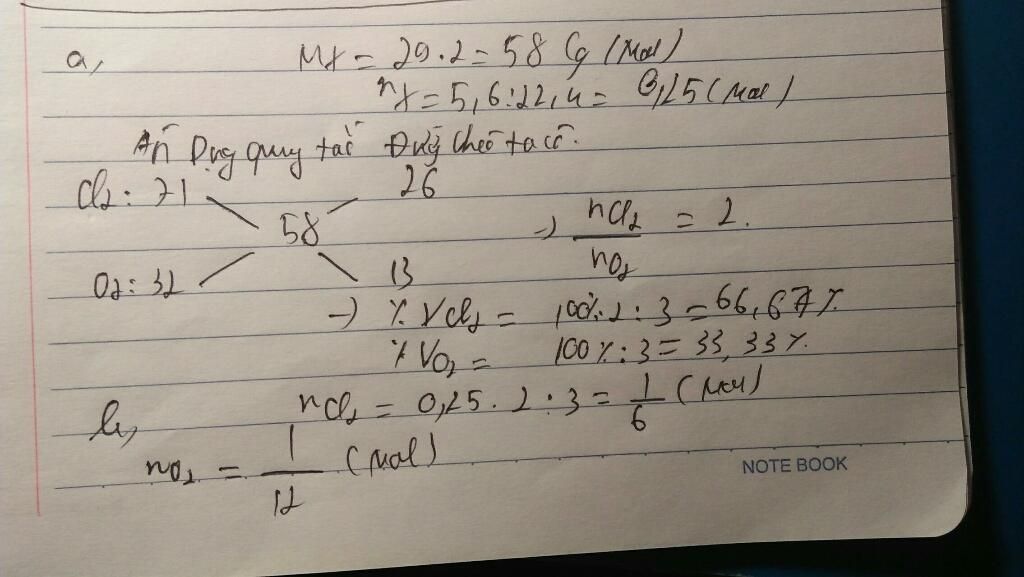 a, Mx = 29.2 = 58 (g/mol)
nx = 5,6:22,4 = 0,25 (mol)
Áp Dụng quy tắc Đường chéo ta có:
Cl2: 71 26
58 -> nCl2/nO2 = 2.
O2: 32 13
-> % VCl2 = 100%.2:3 = 66,67%
% VO2 = 100%:3 = 33,33%.
b, nCl2 = 0,25.2:3 = 1/6 (mol)
nO2 = 1/12 (mol)
NOTE BOOK